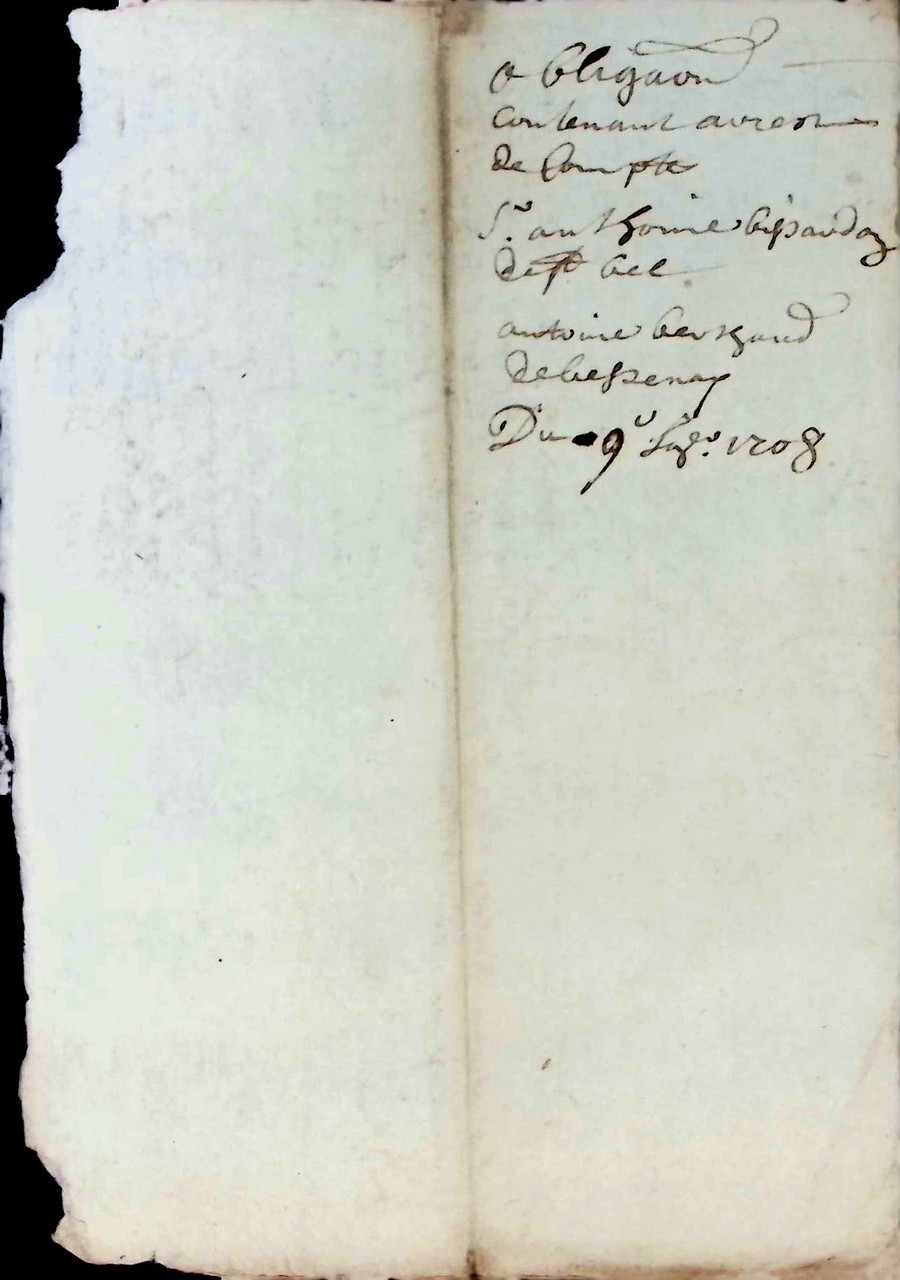 obliga͠on
contenant arrest
de compte
Sr. anthoine
de st bel
antoine berthaud
de bessenay
Du 9e 1708